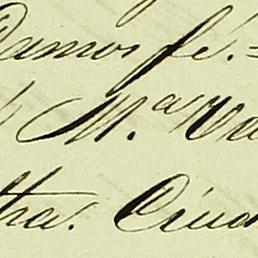 Damos fé.=
M.ª Va
tra. Ciud